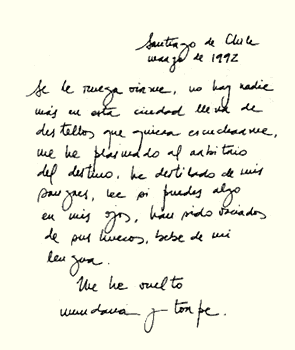 Santiago de Chile
marzo de 1992
Se le ruega oirme, no hay nadie
más en esta ciudad llena de
destellos que quiera escucharme,
me he plasmado al arbitrio
del destino, he destilado de mis
sangres, lee si puedes algo
en mis ojos, han sido vaciados
de sus huecos, bebe de mi
lengua.
Me he vuelto
mundana y torpe.